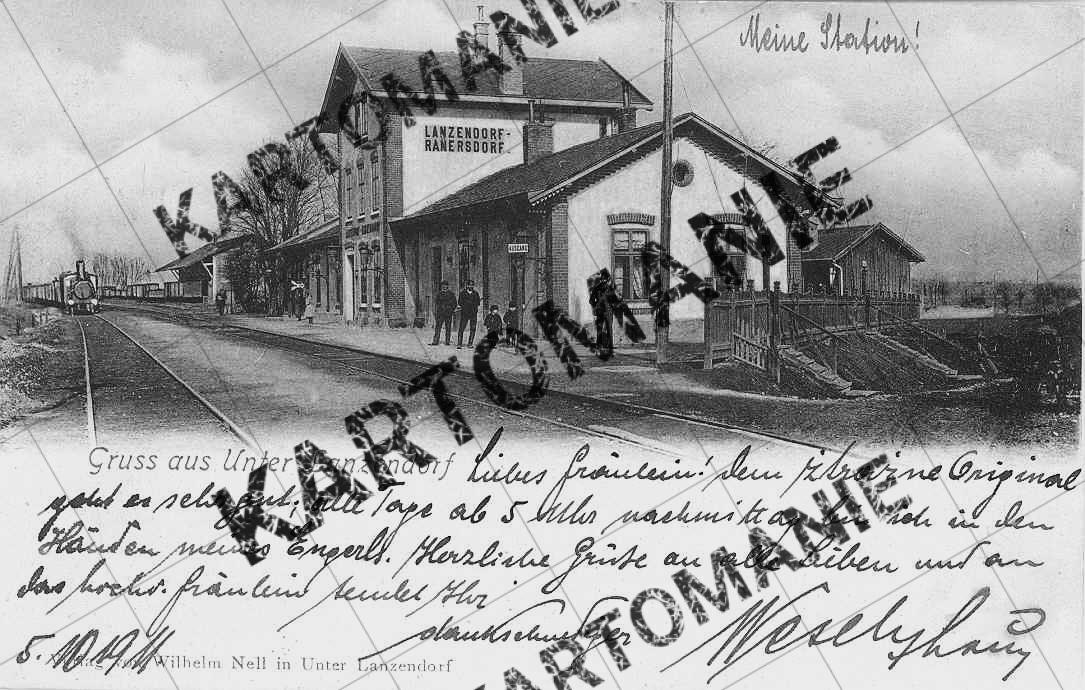 Meine Station!
LANZENDORF-
RANERSDORF.
AUSGANG
Gruss aus Unter Lanzendorf Liebes Fräulein! Dem Original
geht es sehr gut, alle Tage ab 5 Uhr nachmittag bin ich in den
Händen meines Engerls. Herzliche Grüße an alle Lieben und an
das hochv. Fräulein sendet Ihr
dankschuldiger
Wesely
5. 10 1911
Verlag von Wilhelm Nell in Unter Lanzendorf
KARTOMANIE
KARTOMANIE
KARTOMANIE
KARTOMANIE